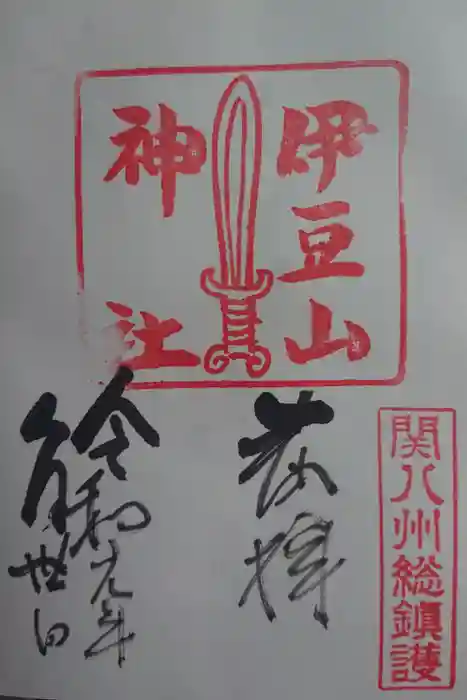 伊豆山
神社
関八州総鎮護
奉拝
令和元年